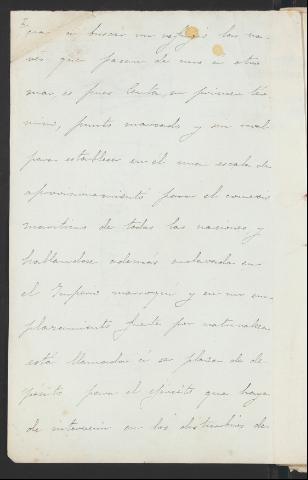 cual á buscar un refugio las na-
ves que pasan de uno á otro
mar es pues Ceuta en primer tér
mino, punto marcado y sin rival
para establecer en él una escala de
aprovisionamiento para el comercio
maritimo de todas las naciones y
hallandose además enclavada en
el Imperio marroqui y en un em-
plazamiento fuerte por naturaleza
está llamada á ser plaza de de-
pósito para el ejército que haya
de intervenir en los disturbios de